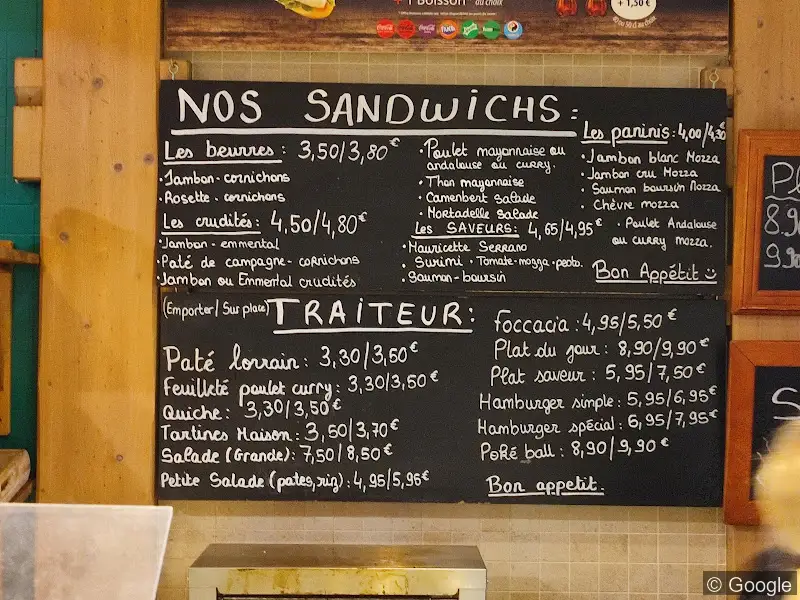 + 1 Boisson au choix
+ 1,50€
NOS SANDWiCHS:
Les beurres : 3,50/3,80€
• Jambon - cornichons
• Rosette - cornichons
Les crudités: 4,50/4,80€
• Jambon - emmental
• Paté de campagne - cornichons
• Jambon ou Emmental crudités
• Poulet mayonnaise ou
andalouse ou curry.
• Thon mayonnaise
• Camenbert Salade
• Mortadelle Salade
Les SAVEURS: 4,65/4,95€
• Mauricette Serrano
• Surimi • Tomate-mozza-pesto.
• Saumon - boursin
Les paninis: 4,00/4,30
• Jambon blanc Mozza
• Jambon cru Mozza
• Saumon boursin Mozza
• Chèvre mozza
• Poulet Andalouse
ou curry mozza.
Bon Appétit
(Emporter/ Sur place) TRAITEUR:
Paté lorrain : 3,30/3,50€
Feuilleté poulet curry: 3,30/3,50€
Quiche: 3,30/3,50€
Tartines Maison: 3,50/3,70€
Salade (Grande): 7,50/8,50€
Petite Salade (pates, riz): 4,95/5,95€
Foccacia : 4,95/5,50€
Plat du jour : 8,90/9,90€
Plat saveur : 5,95/7,50€
Hamburger simple: 5,95/6,95€
Hamburger spécial: 6,95/7,95€
Poké ball : 8,90/9,90€
Bon appetit.
8.9
© Google